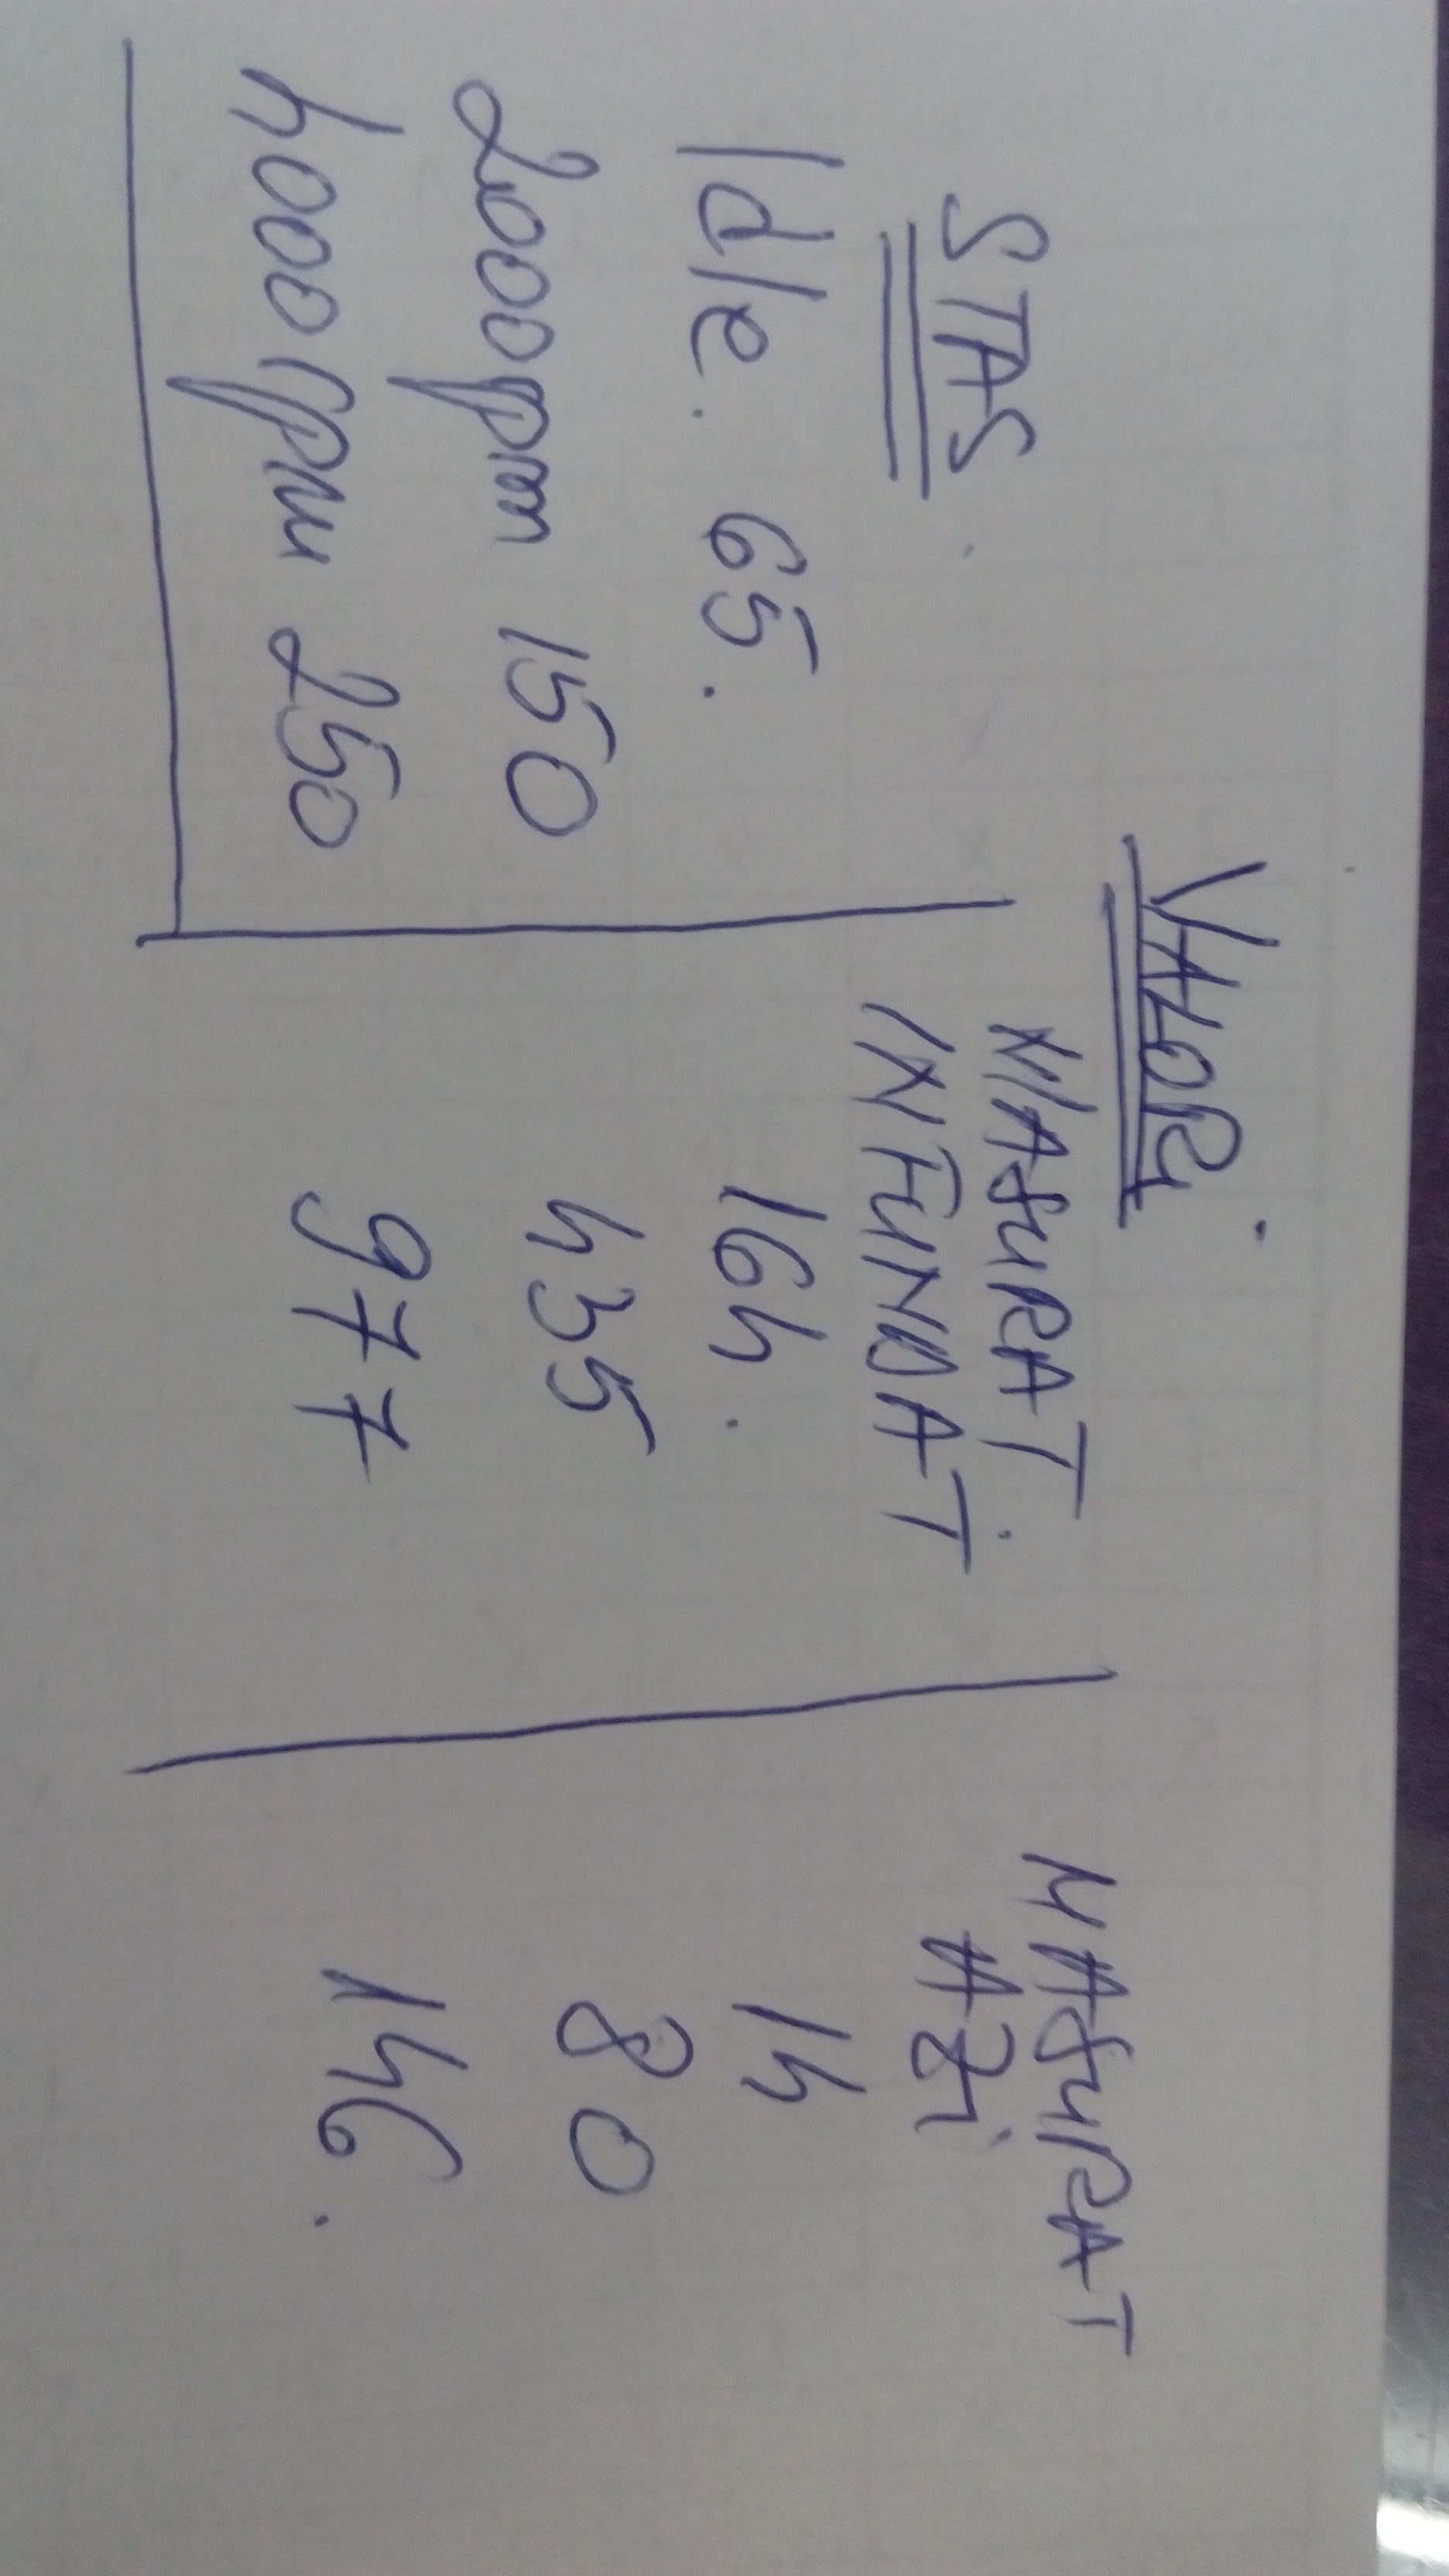 VALORI
STAS
MASURAT
INFUNDAT
MASURAT
AZI
Idle. 65. 164. 14
2000rpm 150 435 80
4000rpm 250 977 146.